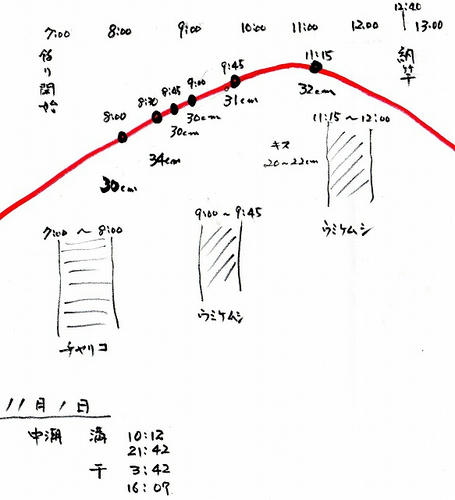 12:40
7:00 8:00 9:00 10:00 11:00 12:00 13:00
釣り開始
納竿
8:00
30cm
8:30
34cm
8:45
30cm
9:00
30cm
9:45
31cm
11:15
32cm
キス
20~22cm
11:15~12:00
ウミケムシ
9:00~9:45
ウミケムシ
7:00~8:00
チャリコ
11月1日
中潮 満 10:12
21:42
干 3:42
16:09